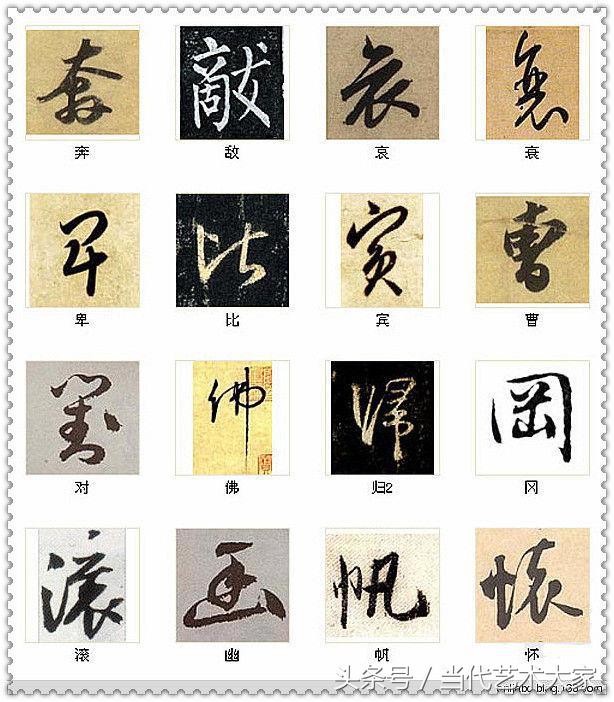 奔 敌 哀 衰
卑 比 宾 曹
对 佛 归2 冈
滚 幽 帆 怀
头条号 / 当代艺术大家